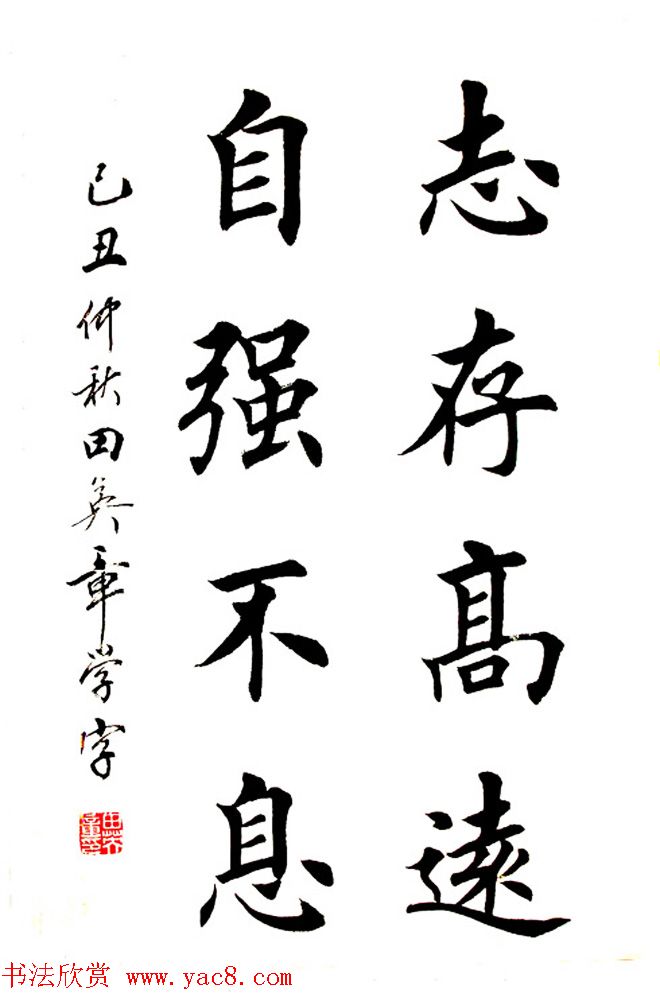 志存髙遠
自强不息
己丑仲秋田英章学字
田英章印
书法欣赏 www.yac8.com